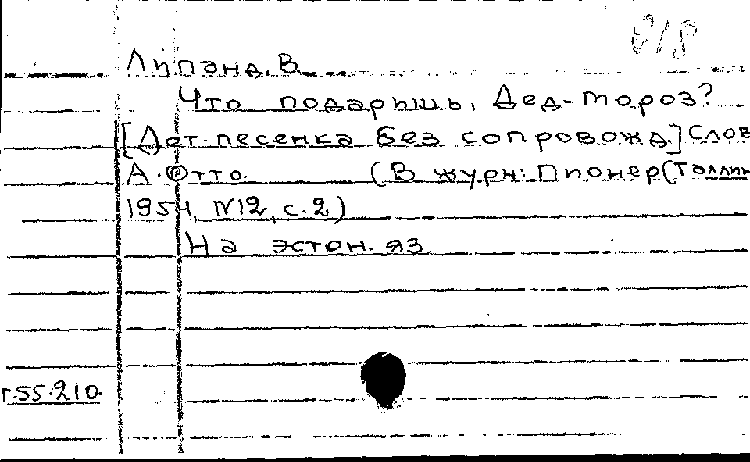 б/р
Липанд, В.
Что подаришь, Дед-Мороз?
[Дет. песенка без сопровожд.] Слов
А. Отто. (В журн: Пионер (Таллин
1954, N12, с. 2)
На эстон. яз
г.55.210.